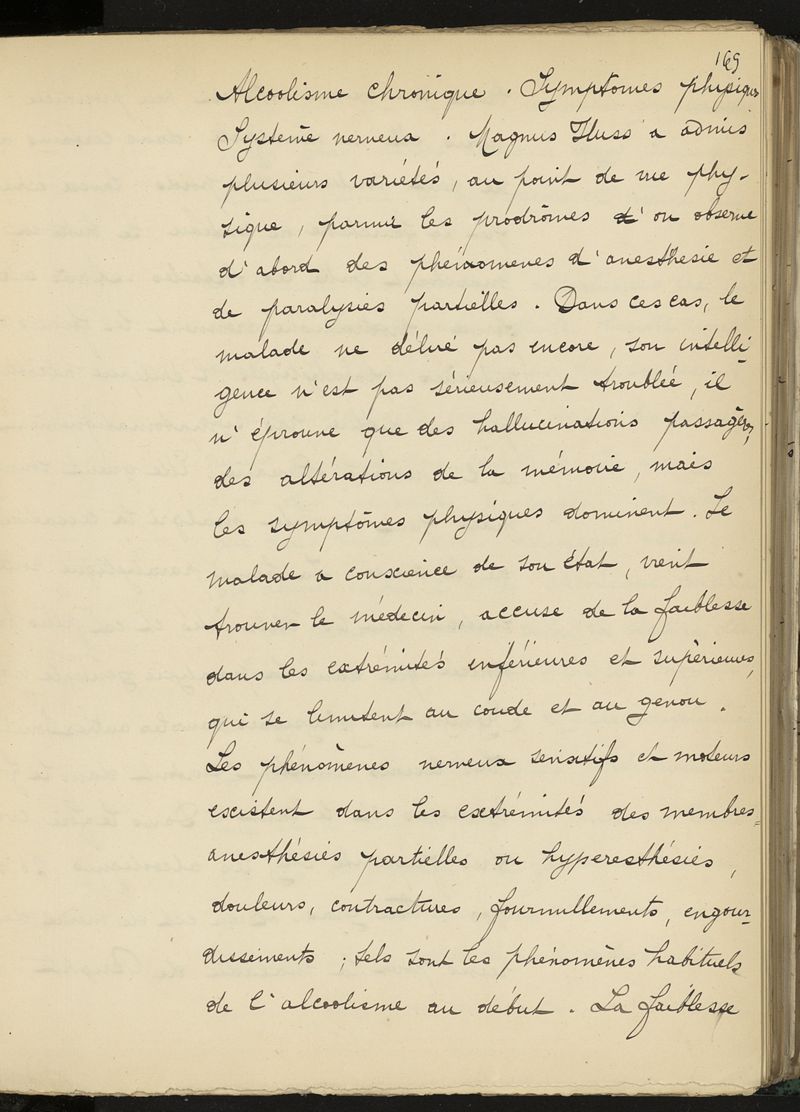 169
Alcoolisme chronique. Symptomes physiques
Système nerveux. Magnus Huss a admis
plusieurs variétés, au point de vue phy-
sique, parmi les prodrômes d' on observe
d'abord des phénomenes d'anesthesie et
de paralysies partielles. Dans ces cas, le
malade ne délire pas encore, son intelli-
gence n'est pas sérieusement troublée, il
n'éprouve que des hallucinations passagères,
des altérations de la mémoire, mais
les symptômes physiques dominent. Le
malade a conscience de son état, vient
trouver le médecin, accuse de la faiblesse
dans les extrémités inférieures et supèrieures,
qui se limitent au coude et au genou.
Les phénomènes nerveux sensitifs et moteurs
existent dans les extrémités des membres=
anesthésies partielles ou hyperesthésies,
douleurs, contractures, fourmillements, engour-
dissements; tels sont les phénomènes habituels
de l'alcoolisme au début. La faiblesse